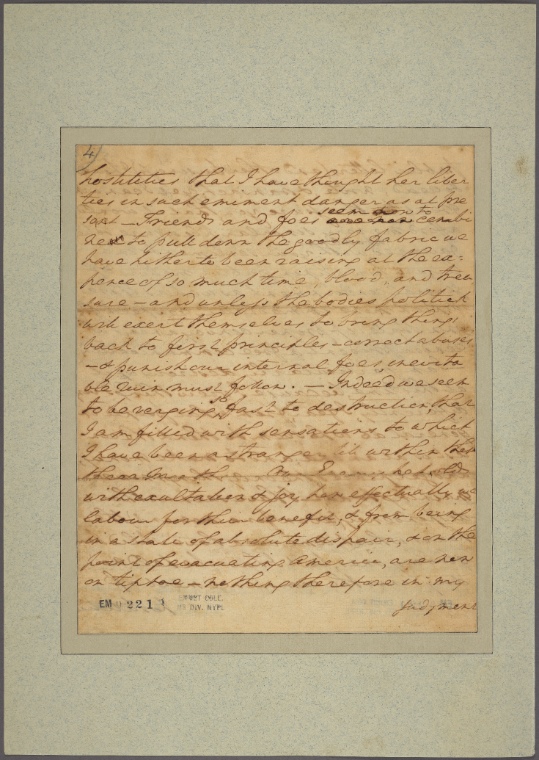 4)
hostilities that I have thought her liber
ties in such eminent danger as at pre
sent – Friends and foes seem now to combi
ne to pull down the goodly fabric we
have hitherto been raising at the ex=
pence of so much time, blood, and trea
sure – and unless the bodies politick
will exert themselves to bring things
back to first principles – correct abuses
– & punish our internal foes, inevita
ble ruin must follow. – Indeed we seem
to be verging so fast to destruction, that
I am filled with sensations to which
I have been a stranger till within these
three Months. Our Enemy behold
with exultation & joy how effectually we
labour for their benefit; & from being
in a state of absolute despair, & on the
point of evacuating America, are now
on tiptoe – nothing therefore in my
judgment
EM 2213
COLL.
DIV. NYPL